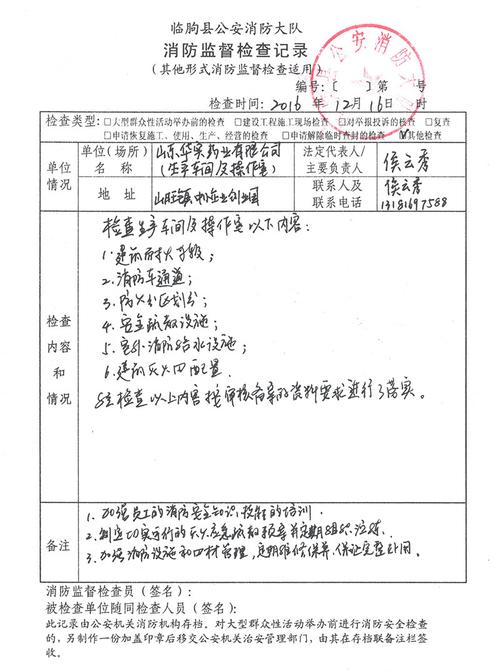 临朐县公安消防大队
消防监督检查记录
（其他形式消防监督检查适用）
编号：〔 〕第 号
检查时间：2016 年 12 月 16 日 时
检查类型： □大型群众性活动举办前的检查 □建设工程施工现场检查 □对举报投诉的检查 □复查
□申请恢复施工、使用、生产、经营的检查 □申请解除临时查封的检查 ☑其他检查
单位情况
单位(场所)名称 山东华宋药业有限公司
(生产车间及操作室)
法定代表人/主要负责人 侯云秀
地址
联系人及联系电话 侯云秀
13181697588
检查内容和情况
检查生产车间及操作室以下内容：
1.建筑耐火等级；
2.消防车通道；
3.防火分区划分；
4.安全疏散设施；
5.室外消防给水设施；
6.建筑灭火器配置.
经检查以上内容按审核备案的资料要求进行了落实。
备注
1.加强员工的消防安全知识、技能的培训.
2.制定切实可行的灭火应急疏散预案并定期组织演练.
3.加强消防设施和器材管理，定期维修保养，保证完整好用.
消防监督检查员（签名）：
被检查单位随同检查人员（签名）：
此记录由公安机关消防机构存档。对大型群众性活动举办前进行消防安全检查
的，另制作一份加盖印章后移交公安机关治安管理部门，由其在存档联备注栏签
收。